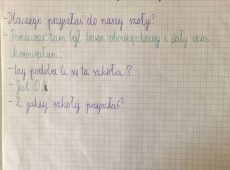 -Dlaczego przyszłaś do naszej szkoły?
-Ponieważ tam był baran obowiązkowy i cały czas
chorowałam.
-Czy podoba ci się ta szkoła?
-Jest O.k
-Z jakiej szkoły przyszłaś?